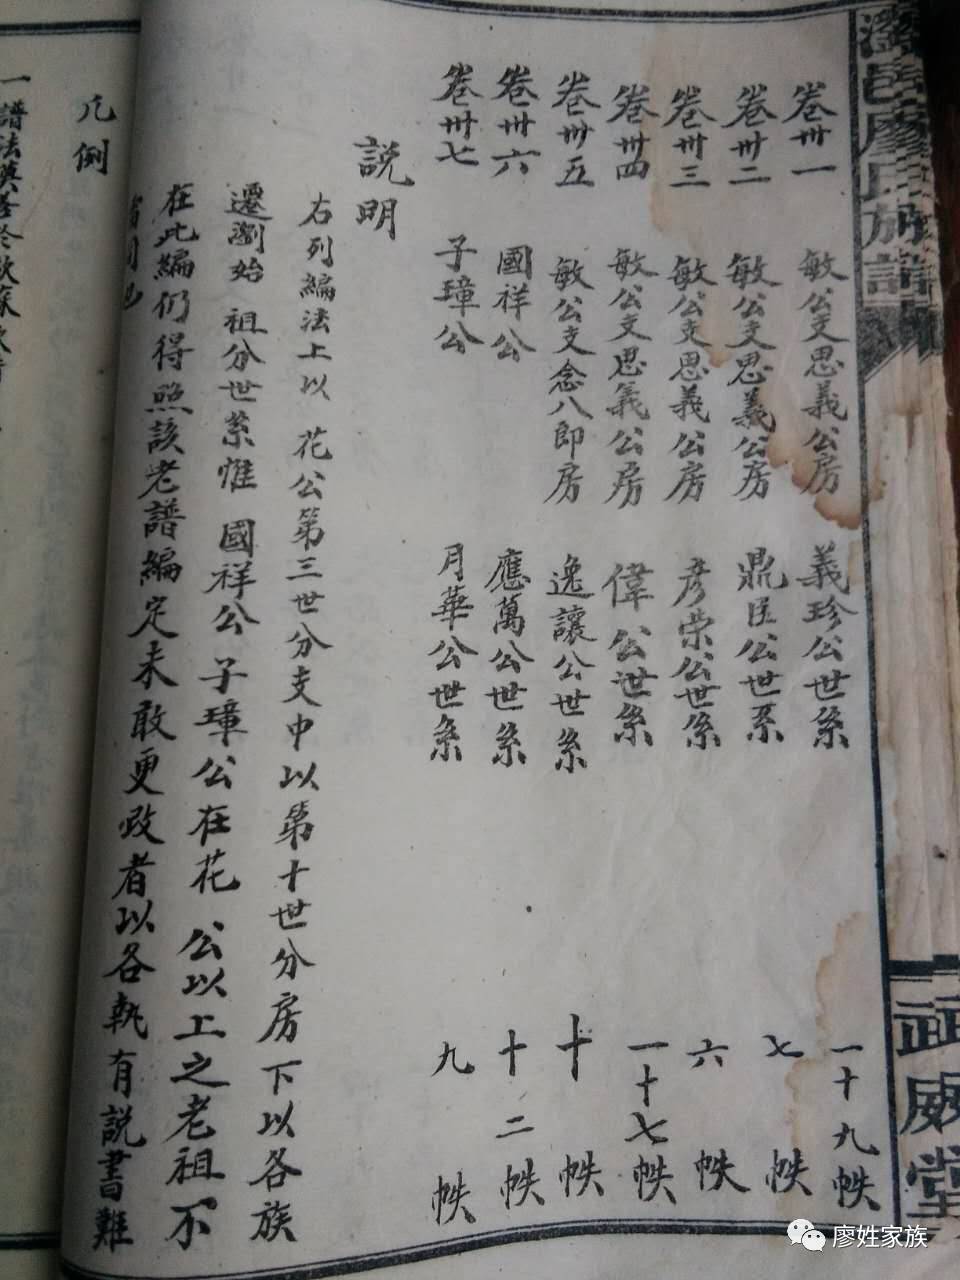 瀏邑廖氏族譜
武威堂
卷卅一 敏公支思義公房 義珍公世系 一十九帙
卷卅二 敏公支思義公房 鼎臣公世系 七帙
卷卅三 敏公支思義公房 彥榮公世系 六帙
卷卅四 敏公支思義公房 偉公世系 一十七帙
卷卅五 敏公支念八郎房 逸讓公世系 十帙
卷卅六 國祥公 應萬公世系 十二帙
卷卅七 子璋公 月華公世系 九帙
說明
右列編法上以 花公第三世分支中以第十世分房下以各族
遷瀏始 祖分世系惟 國祥公 子璋公在花 公以上之老祖不
在此編仍得照該老譜編定未敢更改者以各執有說書難
凡例
一 譜法
廖姓家族